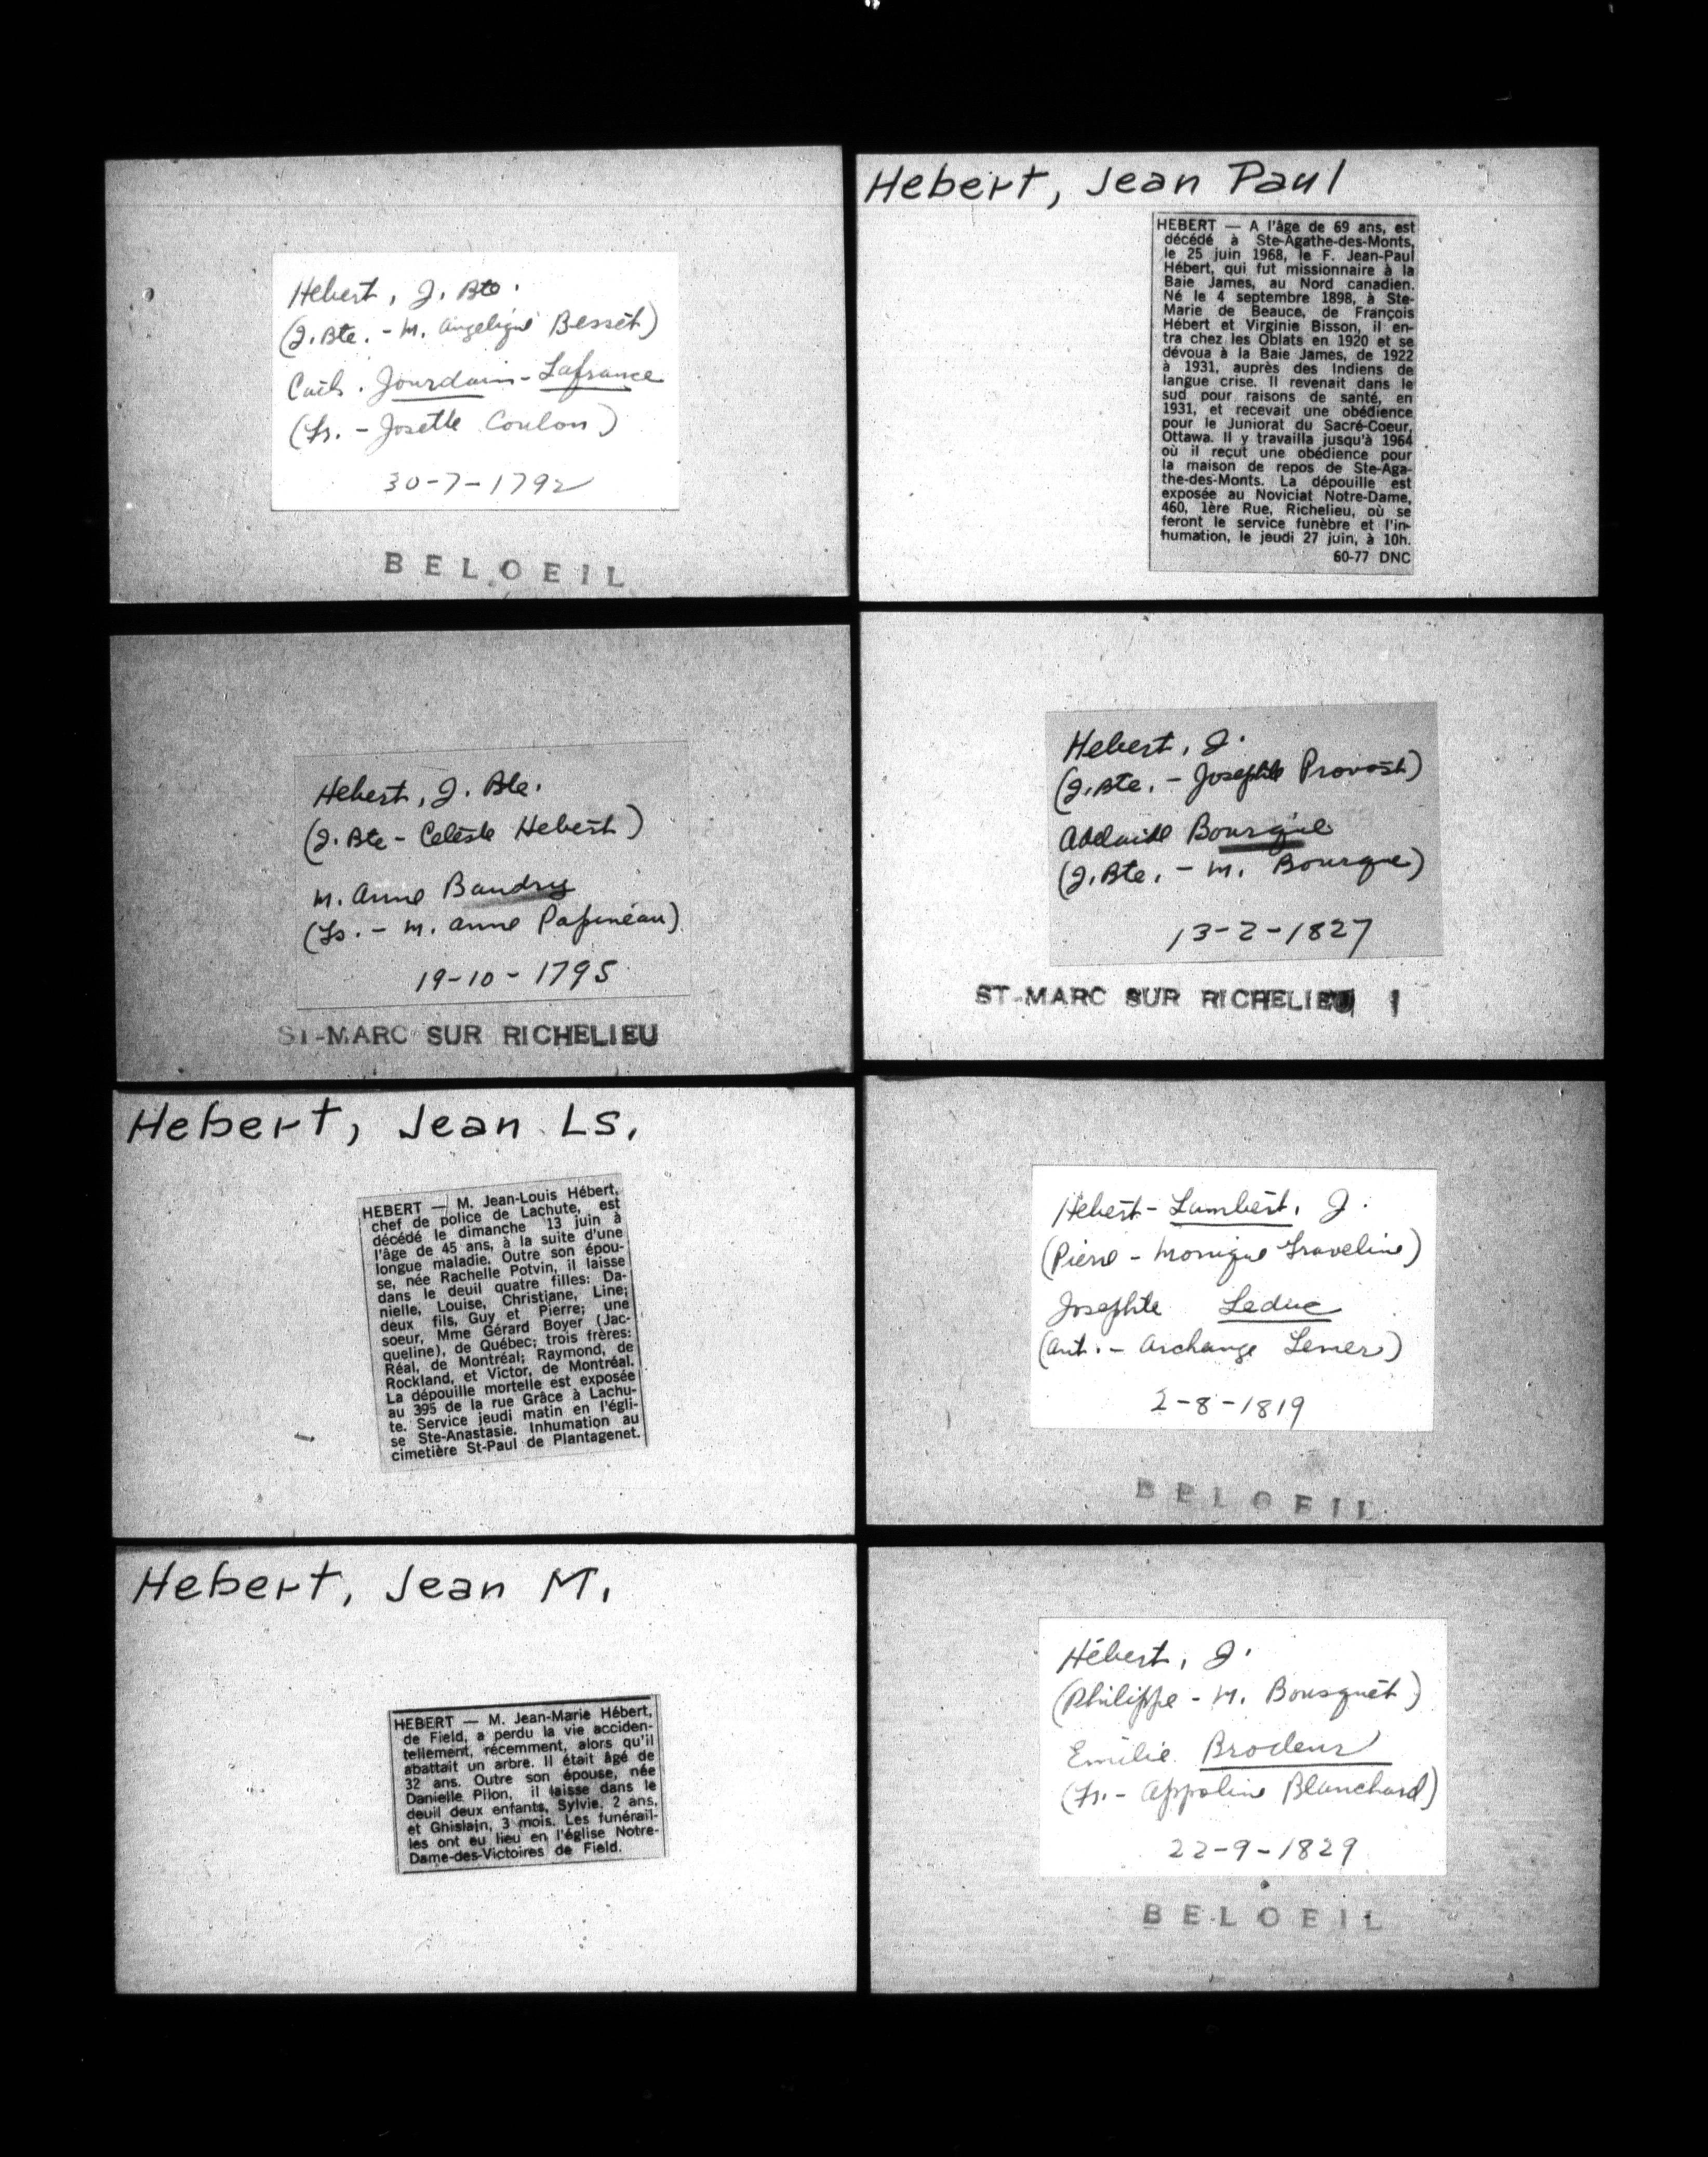 Hebert, J. Bte.
(J. Bte. - M. Angelique Besset)
Cath. Jourdain - Lafrance
(Fr. - Josette Coulon)
30-7-1792
BELOEIL
Hebert, J. Bte.
(J. Bte - Celeste Hebert)
M. Anne Baudry
(Ls. - M. Anne Papineau)
19-10-1795
ST-MARC SUR RICHELIEU
Hebert, Jean Ls.
HEBERT — M. Jean-Louis Hébert,
chef de police de Lachute, est
décédé le dimanche 13 juin à
l'âge de 45 ans, à la suite d'une
longue maladie. Outre son épou-
se, née Rachelle Potvin, il laisse
dans le deuil quatre filles: Da-
nielle, Louise, Christiane, Line;
deux fils, Guy et Pierre; une
soeur, Mme Gérard Boyer (Jac-
queline), de Québec; trois frères:
Réal, de Montréal; Raymond, de
Rockland, et Victor, de Montréal.
La dépouille mortelle est exposée
au 395 de la rue Grâce à Lachu-
te. Service jeudi matin en l'égli-
se Ste-Anastasie. Inhumation au
cimetière St-Paul de Plantagenet.
Hebert, Jean M.
HEBERT — M. Jean-Marie Hébert,
de Field, a perdu la vie acciden-
tellement, récemment, alors qu'il
abattait un arbre. Il était âgé de
32 ans. Outre son épouse, née
Danielle Pilon, il laisse dans le
deuil deux enfants, Sylvie, 2 ans,
et Ghislain, 3 mois. Les funérail-
les ont eu lieu en l'église Notre-
Dame-des-Victoires de Field.
Hebert, Jean Paul
HEBERT — A l'âge de 69 ans, est
décédé à Ste-Agathe-des-Monts,
le 25 juin 1968, le F. Jean-Paul
Hébert, qui fut missionnaire à la
Baie James, au Nord canadien.
Né le 4 septembre 1898, à Ste-
Marie de Beauce, de François
Hébert et Virginie Bisson, il en-
tra chez les Oblats en 1920 et se
dévoua à la Baie James, de 1922
à 1931, auprès des Indiens de
langue crise. Il revenait dans le
sud pour raisons de santé, en
1931, et recevait une obédience
pour le Juniorat du Sacré-Coeur,
Ottawa. Il y travailla jusqu'à 1964
où il reçut une obédience pour
la maison de repos de Ste-Aga-
the-des-Monts. La dépouille est
exposée au Noviciat Notre-Dame,
460, 1ère Rue, Richelieu, où se
feront le service funèbre et l'in-
humation, le jeudi 27 juin, à 10h.
60-77 DNC
Hebert, J.
(J. Bte. - Josephte Provost)
Adelaide Bourgie
(J. Bte. - M. Bourque)
13-2-1827
ST-MARC SUR RICHELIEU
Hebert - Lambert, J.
(Pierre - Monique Graveline)
Josephte Leduc
(Ant. - Archange Lemer)
2-8-1819
BELOEIL
Hébert, J.
(Philippe - M. Bousquet)
Emilie Brodeur
(Fr. - Appoline Blanchard)
22-9-1829
BELOEIL